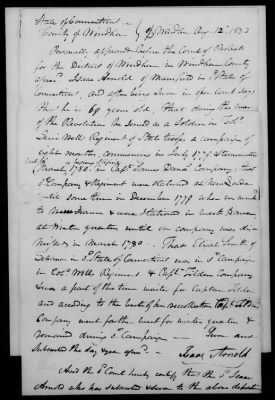 State of Connecticut
County of Windham } ss Windham Aug. 12th 1832
Personally appeared before the Court of Probate
for the District of Windham in Windham County
afores'd Isaac Arnold of Mansfield in s'd State of
Connecticut, and after being sworn in open Court says
that he is 69 years old. That during the war
of the Revolution he served as a Soldier in Col.
Levi Wells Regiment of State troops a campaign of
eight months, commencing in July 1779 & terminating
March, 1780. in Capt. James Dana Company; that
s'd Company & Regiment were stationed at New London
until some time in December 1779 when we marched
to New Haven & were stationed in west Haven
at winter quarters until our company was dis-
missed in March 1780. That Elijah Smith of
Lebanon in s'd State of Connecticut was in s'd Campaign
in Col. Wells Regiment & Capt. Tilden Company
a part of the time under Captain Tilden
and according to the best of his recollection Capt. Tilden
Company went further west for winter quarters &
remained during s'd Campaign — Sworn and
Subscribed the day & year afores'd —
Isaac Arnold
And the s'd Court hereby certify that the s'd Isaac
Arnold who has subscribed & sworn to the above deposition